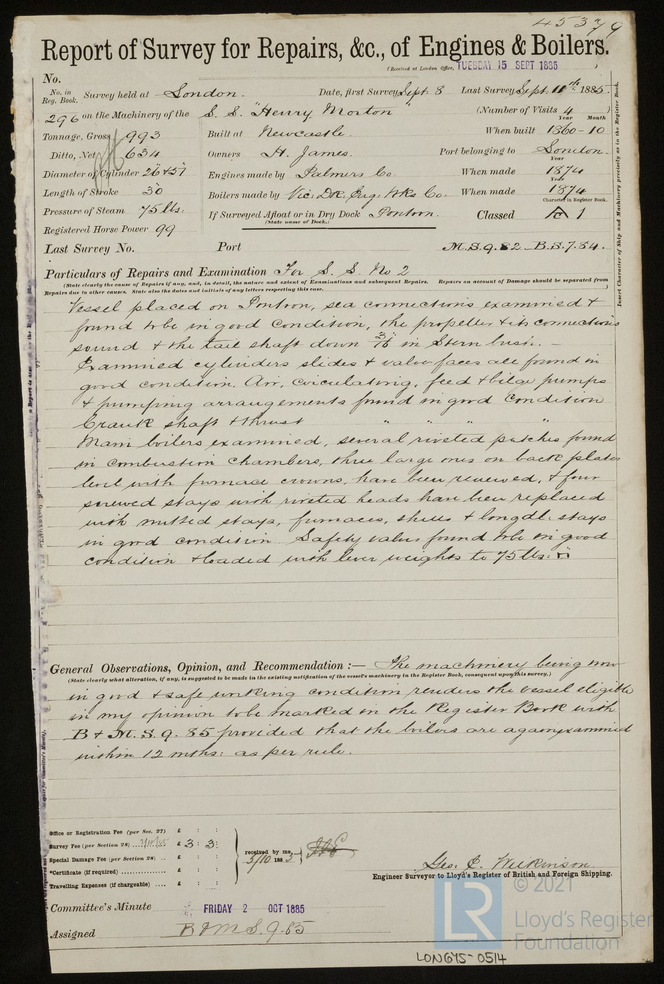 45379
Report of Survey for Repairs, &c., of Engines & Boilers.
(Received at London Office, TUESDAY 15 SEPT 1885
No.
No. in Reg. Book. Survey held at London. Date, first Survey Sept. 8 Last Survey Sept. 11th 1885.
296 on the Machinery of the S. S. "Henry Morton (Number of Visits 4
Year Month
Tonnage, Gross 993 Built at Newcastle. When built 1860-10
Ditto, Net 634 Owners H. James. Port belonging to London.
Year
Diameter of Cylinder 26 & 57 Engines made by Palmers Co. When made 1874
Year
Length of Stroke 30 Boilers made by Vic: Doc. Eng. Wks Co. When made 1874
Character in Register Book.
Pressure of Steam 75 lbs. If Surveyed Afloat or in Dry Dock Pontoon. Classed A 1
(State name of Dock.)
Registered Horse Power 99
Last Survey No. Port M.S.9.82 - B.S.7.84.
Particulars of Repairs and Examination For S. S. No 2
(State clearly the cause of Repairs if any, and, in detail, the nature and extent of Examinations and subsequent Repairs. Repairs on account of Damage should be separated from
Repairs due to other causes. State also the dates and initials of any letters respecting this case.)
Vessel placed on Pontoon, sea connections examined &
found to be in good condition, the propeller & its connections
sound & the tail shaft down 3/16" in Stern bush. -
Examined cylinders slides & valve faces all found in
good condition. Air, circulating, feed & bilge pumps
& pumping arrangements found in good condition
Crank shaft & thrust " " "
Main boilers examined, several riveted patches found
in combustion chambers, three large ones on back plates
level with furnace crowns, have been renewed, & four
screwed stays with riveted heads have been replaced
with nutted stays, furnaces, shells & longdl. stays
in good condition. Safety valves found to be in good
condition & loaded with lever weights to 75 lbs. □"
General Observations, Opinion, and Recommendation :— The machinery being now
(State clearly what alteration, if any, is suggested to be made in the existing notification of the vessel's machinery in the Register Book, consequent upon this survey.)
in good & safe working condition renders the vessel eligible
in my opinion to be marked in the Register Book with
B & M. S. 9. 85 provided that the boilers are again examined
within 12 mths: as per rule.
Office or Registration Fee (per Sec. 27) £ : :
Survey Fee (per Section 28) £ 3 : 3 :
Special Damage Fee (per Section 28) £ : :
*Certificate (if required) £ : :
Travelling Expenses (if chargeable) £ : :
received by me,
5/10 1885.
Geo. C. Wilkinson.
Engineer Surveyor to Lloyd's Register of British and Foreign Shipping.
Committee's Minute FRIDAY 2 OCT 1885
Assigned B & M S. 9. 85
Insert Character of Ship and Machinery precisely as in the Register Book.
© 2021
LR Lloyd's Register
Foundation
LON645-0514